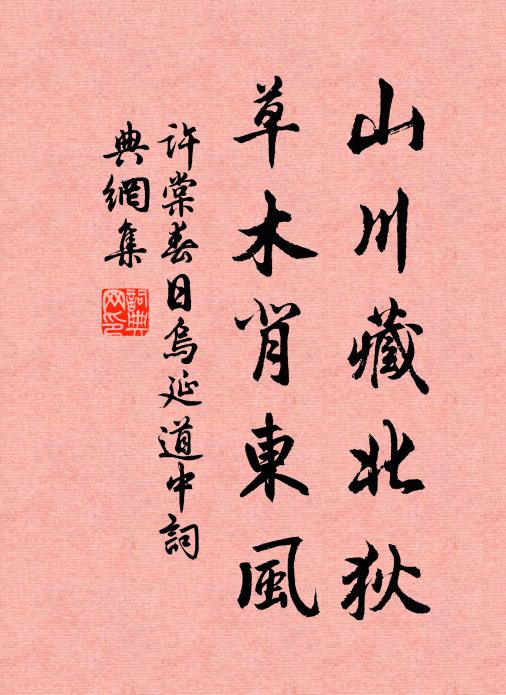 山川藏北狄
草木背東風
許棠春日烏延道中詞
典網集
詞典
网印